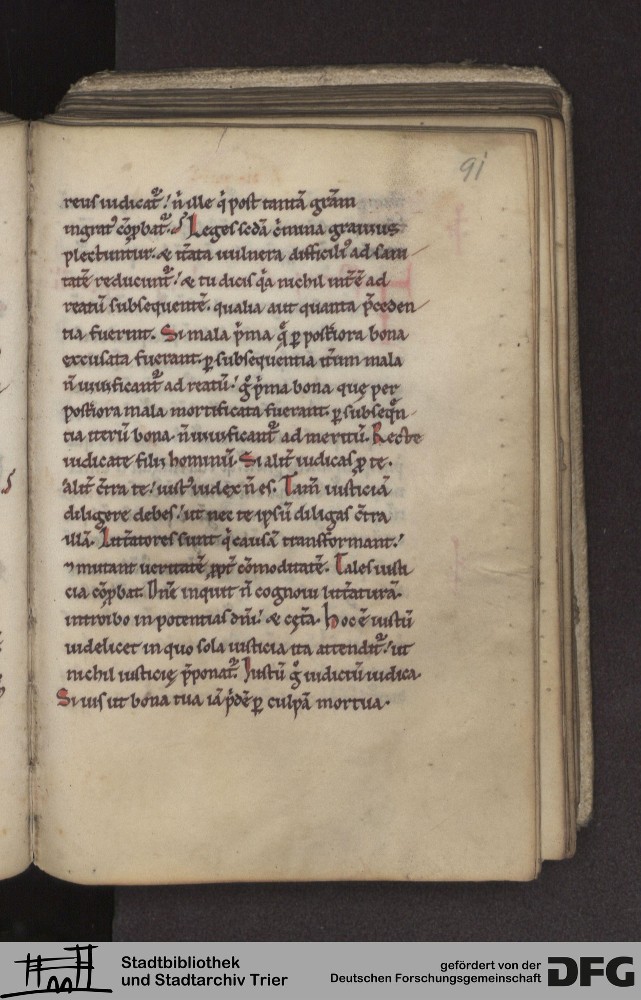 91
reus iudicat᷑. n̄ ille q̇ post tantā grām
ingrat᷒ cōꝓbat᷑. Leges scdā c̄mina grauius
plectuntur. & itata uulnera difficili᷒ ad sani
tatē reducunt᷑. & tu dicis qᷓa nichil int̄e ad
reatū subsequentē. qualia aut quanta p̄ceden
tia fuerint. Si mala p̄ma qͦ ꝑ post̄iora bona
excusata fuerant. ꝑ subsequentia it̄um mala
n̄ uiuificant᷑ ad reatū. gͦ p̄ma bona quę per
post̄iora mala mortificata fuerant. ꝑ subseq̄n
tia iterū bona n̄ uiuificant᷑ ad meritū. Recte
iudicate filii hominū. Si alit̄ iudicas ꝓ te.
alit̄ c̄tra te. iust᷒ iudex n̄ es. Tam̄ iusticiā
diligere debes. ut nec te ipsū diligas c̄tra
illā. Litt̄atores sunt q̇ causā transformant.
⁊ mutant ueritatē ꝓpt̄ cōmoditatē. Tales iusti
cia cōꝓbat. Dn̄e inquit n̄ cognoui litt̄aturā.
introibo in potentias dn̄i. & cęt̄a. hoc ē iustū
uidelicet in quo sola iusticia ita attendit᷑. ut
nichil iusticię p̄ponat᷑. Iustū gͦ iudiciū iudica.
Si uis ut bona tua iā p̄dē ꝑ culpā mortua.
Stadtbibliothek
und Stadtarchiv Trier
gefördert von der
Deutschen Forschungsgemeinschaft
DFG